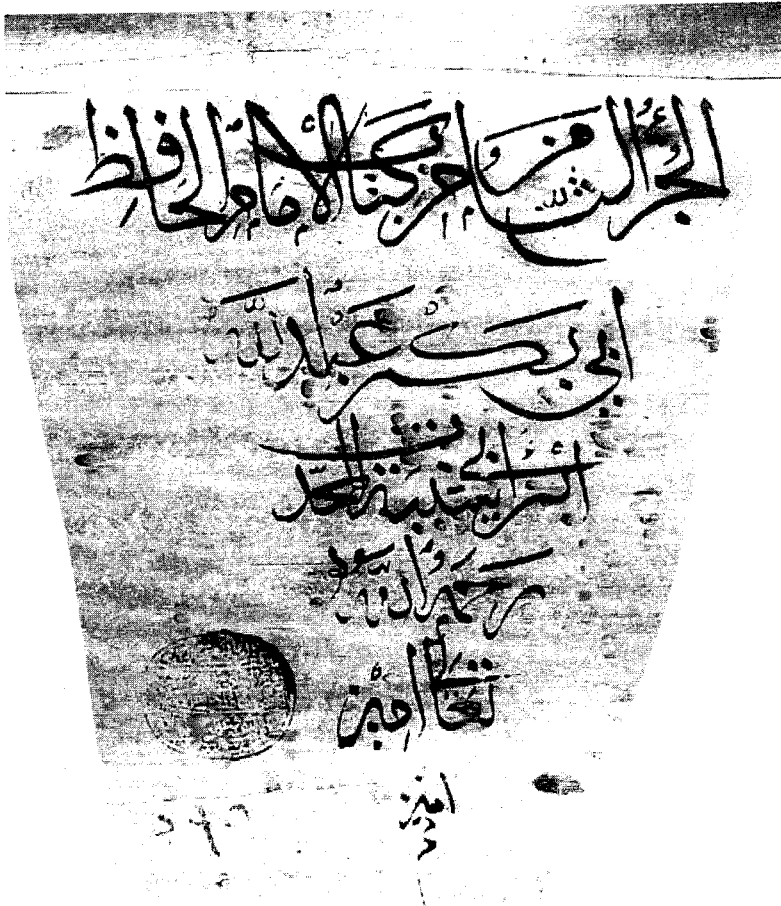 الجزء الثامن واخر كتاب الإمام الحافظ
ابي بكر عبد الله
ابن ابي شيبة المحدث
رحمه الله
تعالى امين
امين